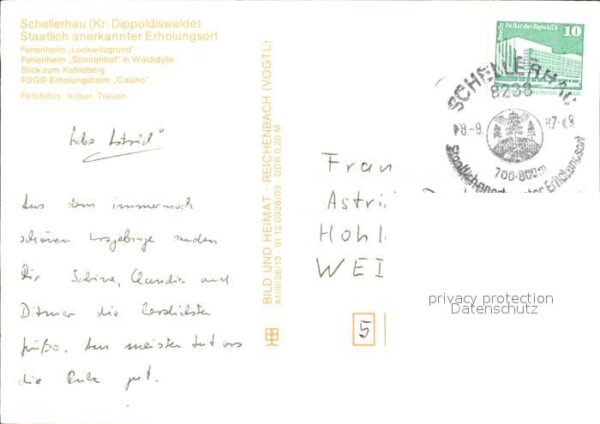 Schellerhau (Kr. Dippoldiswalde)
Staatlich anerkannter Erholungsort
Ferienheim „Lockwitzgrund“
Ferienheim „Sonnenhof“ in Waldidylle
Blick zum Kahleberg
FDGB-Erholungsheim „Casino“
Farbfotos: Kober, Treuen
Astrid"
Aus dem immer noch
schönen Erzgebirge senden
Dir Sabine, Claudia und
Ditmar die herzlichsten
Grüße. Am meisten tut uns
die Ruhe gut.
BILD UND HEIMAT · REICHENBACH (VOGTL)
A1/III/26/13 01 12 0328/03 DDR 0,20 M
Berlin, Palast der Republik
10
DDR
SCHELLERHAU
8238
700-800m
Staatlich anerkannter Erholungsort
Frau
Astri
Hohl
WEI
5
privacy protection
Datenschutz